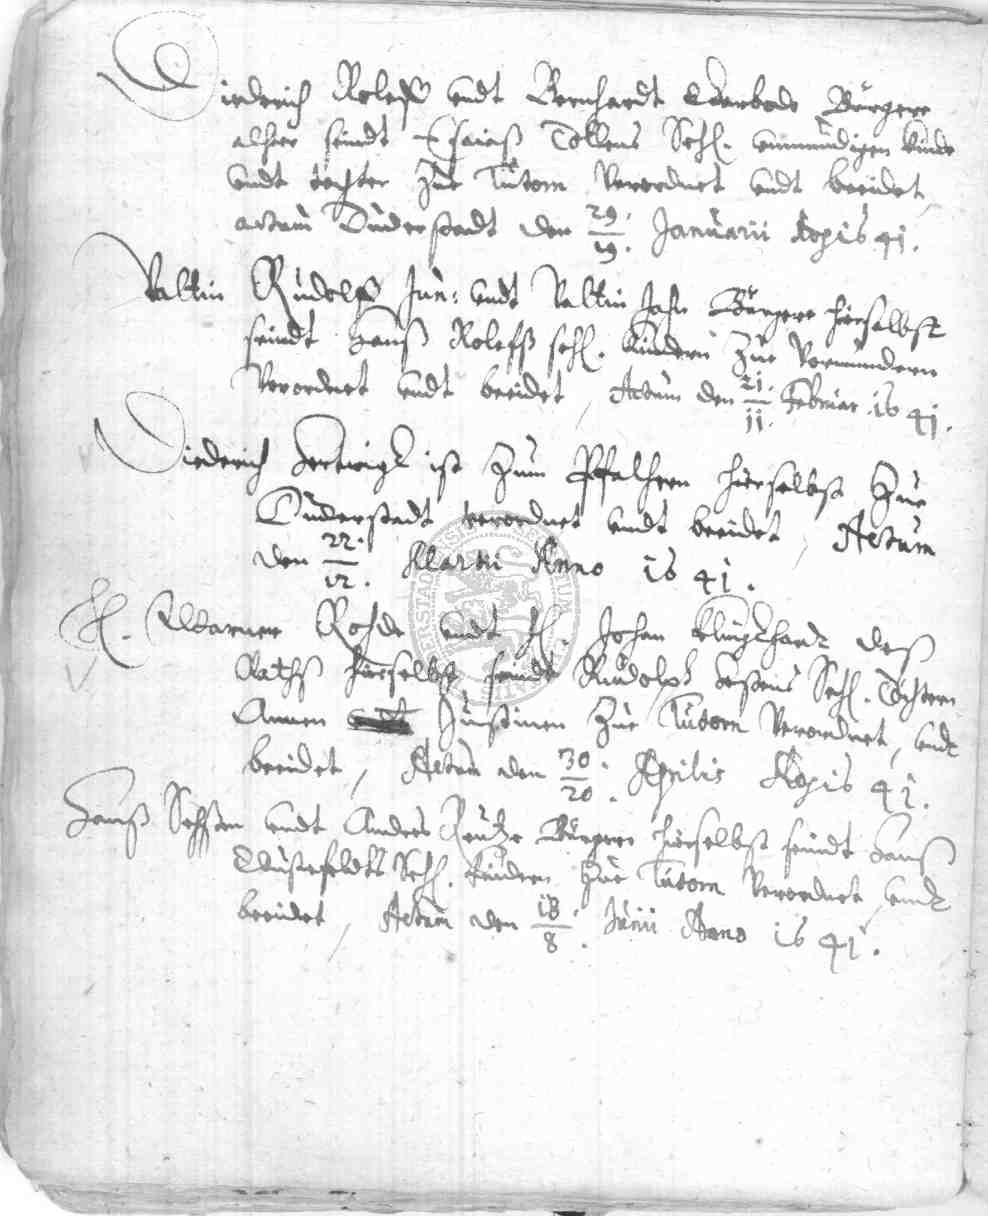 Diederich Roleff undt Bernhardt Bürgere
alhier seindt Tollens Sehl. unmündigen kinde
undt tochter zue Tutorn verordnet undt beeidet,
actum Duderstadt den 29./19. Januarii Aoȷs 41.
Valtin Rudolff Jun: undt Valtin Bürgere hierselbst
seindt Hanß Roleffs sehl. Kindern zue Vormündern
verordnet undt beeidet, Actum den 21./11. Februar. 1641.
Diederich Hertwigk ist zum Pfalhern hierselbst zue
Duderstadt verordnet undt beeidet, Actum
den 22./12. Martii Anno 1641.
H. Warner Rohde undt H. Johan Klinckhardt deß
Raths hierselbst seindt Rudolph Sehl. Töchtern
Annen Justinen zue Tutorn verordnet, undt
beeidet, Actum den 30./20. Aprilis 41.
Hanß undt Andres Bürgere hierselbst seindt Hanß
Wüstefeldts Sehl. kindern zue Tutorn verordnet, undt
beeidet, Actum den 18./8. Junii Anno 1641.